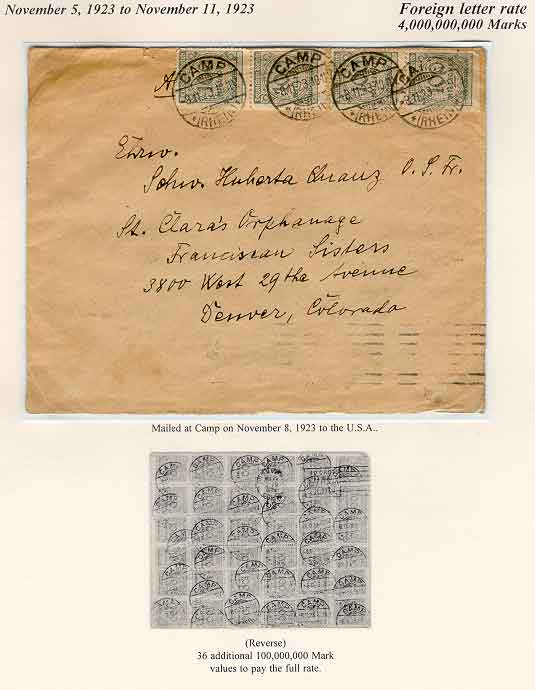 November 5, 1923 to November 11, 1923
Foreign letter rate
4,000,000,000 Marks
CAMP CAMP CAMP CAMP
(RHEIN) (RHEIN) (RHEIN) (RHEIN)
Ehrw.
Schw. Huberta Quanz O. S. Fr.
St. Clara's Orphanage
Franciscan Sisters
3800 West 29the Avenue
Denver, Colorado
Mailed at Camp on November 8, 1923 to the U.S.A..
(Reverse)
36 additional 100,000,000 Mark
values to pay the full rate.